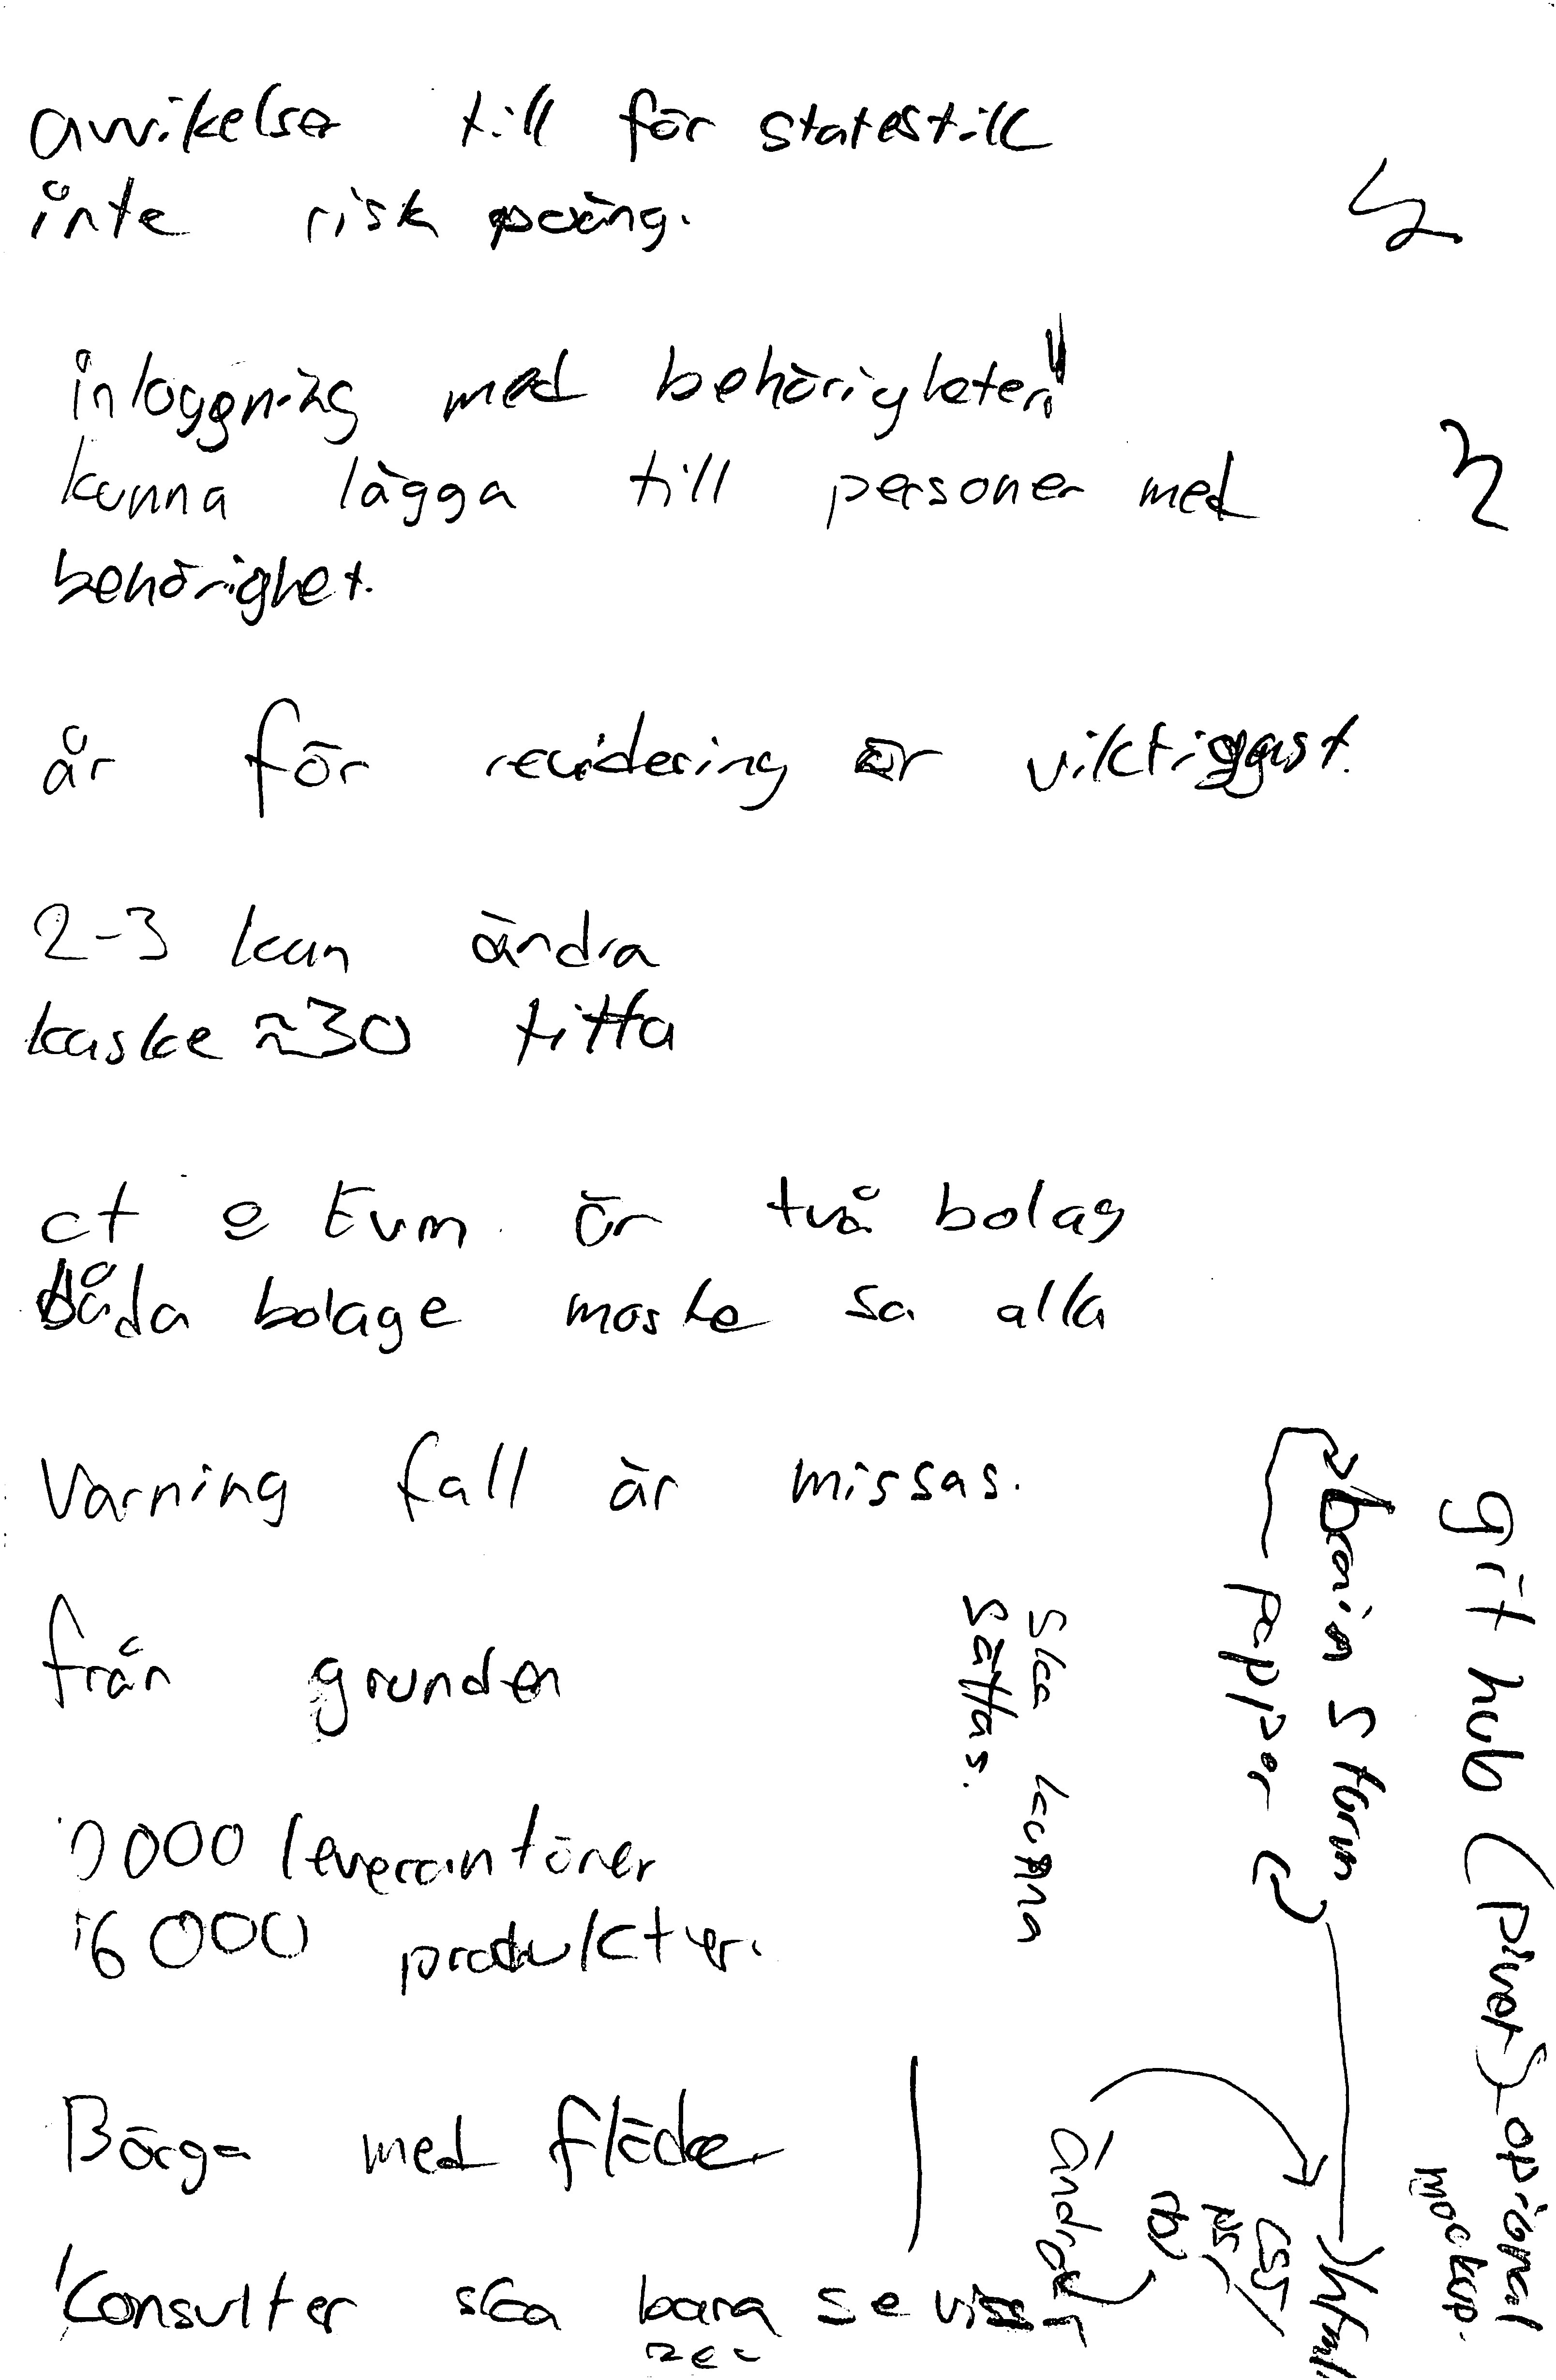 avvikelse till för statestill
inte risk poäng.
inloggning med behörigheter!
kunna lägga till personer med
behörighet.
år för revidering är viktiggast.
2-3 kan ändra
kaske ≈30 titta
ct o Evm är två bolag
båda bolage moste sa alla
Varning fall är missas.
från grunden
000 leverantörer
16 000 produkter.
Börga med flöde
Konsulter ska bara se viss
ska kunna
sättas.
brain storm
papper
git hub (piver) optional
mockup.
ändra
html